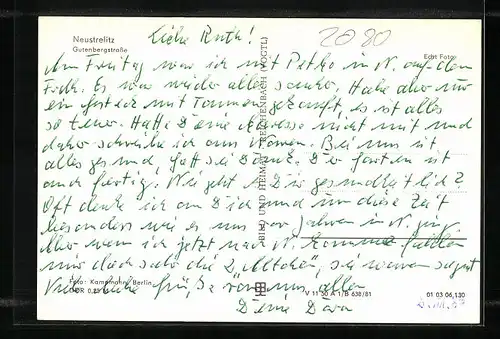 Neustrelitz
Gutenbergstraße
Liebe Ruth!
2080
Echt Foto
Am Freitag war ich mit Petko in N. auf dem
Frdh. Es war wieder alles sauber. Habe aber nur
ein gesteck mit Tannen gekauft, es ist alles
so teuer. Hatte Deine Adresse nicht mit und
daher schreibe ich aus Waren. Bei uns ist
alles gesund, Gott sei Dank. Der Garten ist
auch fertig. Wie geht es Dir gesundheitlich?
Oft denke ich an Dich und um diese Zeit
besonders wie es uns vor Jahren in N. ging.
Aber wenn ich jetzt nach N. komme fehlen
mir doch sehr die 2 , sie waren
Viele liebe Grüße von uns allen
Deine
BILD UND HEIMAT REICHENBACH (VOGTL)
Foto: Kampmann, Berlin
DDR 0,20
V 11 50 A 1/B 638/81
01 03 06 130